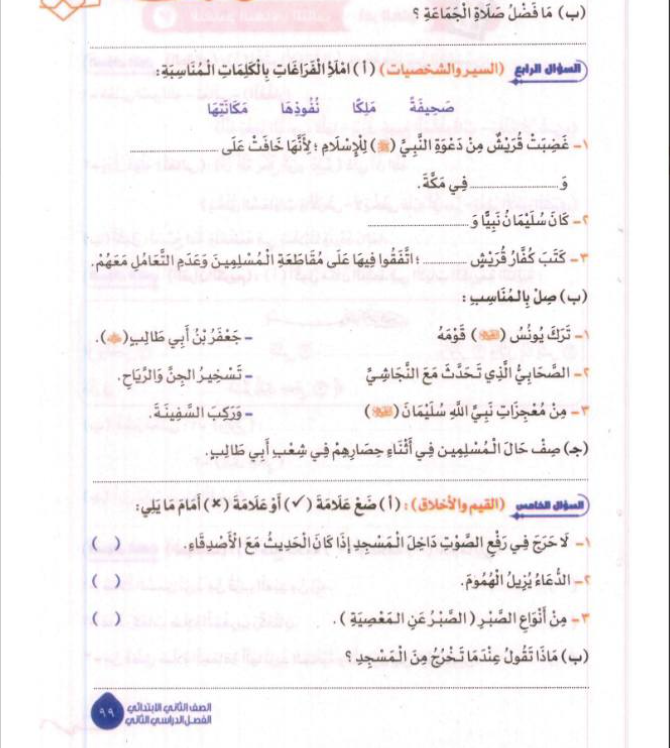 (ب) مَا فَضْلُ صَلَاةِ الْجَمَاعَةِ ؟
السؤال الرابع (السير والشخصيات) (أ) امْلَأِ الْفَرَاغَاتِ بِالْكَلِمَاتِ الْمُنَاسِبَةِ:
صَحِيفَةً مَلِكًا نُفُوذِهَا مَكَانَتِهَا
١- غَضِبَتْ قُرَيْشٌ مِنْ دَعْوَةِ النَّبِيِّ (ﷺ) لِلْإِسْلَامِ ؛ لِأَنَّهَا خَافَتْ عَلَى
وَ فِي مَكَّةَ.
٢- كَانَ سُلَيْمَانُ نَبِيًّا وَ
٣- كَتَبَ كُفَّارُ قُرَيْشٍ ؛ اتَّفَقُوا فِيهَا عَلَى مُقَاطَعَةِ الْمُسْلِمِينَ وَعَدَمِ التَّعَامُلِ مَعَهُمْ.
(ب) صِلْ بِالْمُنَاسِبِ :
١- تَرَكَ يُونُسُ (ﷺ) قَوْمَهُ - جَعْفَرُ بْنُ أَبِي طَالِبٍ ().
٢- الصَّحَابِيُّ الَّذِي تَحَدَّثَ مَعَ النَّجَاشِيِّ - تَسْخِيرُ الْجِنِّ وَالرِّيَاحِ.
٣- مِنْ مُعْجِزَاتِ نَبِيِّ اللَّهِ سُلَيْمَانَ () - وَرَكِبَ السَّفِينَةَ.
(جـ) صِفْ حَالَ الْمُسْلِمِينَ فِي أَثْنَاءِ حِصَارِهِمْ فِي شِعْبِ أَبِي طَالِبٍ.
السؤال الخامس (القيم والأخلاق) : (أ) ضَعْ عَلَامَةَ (✓) أَوْ عَلَامَةَ (×) أَمَامَ مَا يَلِي:
١- لَا حَرَجَ فِي رَفْعِ الصَّوْتِ دَاخِلَ الْمَسْجِدِ إِذَا كَانَ الْحَدِيثُ مَعَ الْأَصْدِقَاءِ. ( )
٢- الدُّعَاءُ يُزِيلُ الْهُمُومَ. ( )
٣- مِنْ أَنْوَاعِ الصَّبْرِ ( الصَّبْرُ عَنِ الْمَعْصِيَةِ ). ( )
(ب) مَاذَا تَقُولُ عِنْدَمَا تَخْرُجُ مِنَ الْمَسْجِدِ ؟
الصف الثاني الابتدائي
الفصل الدراسي الثاني
٩٩